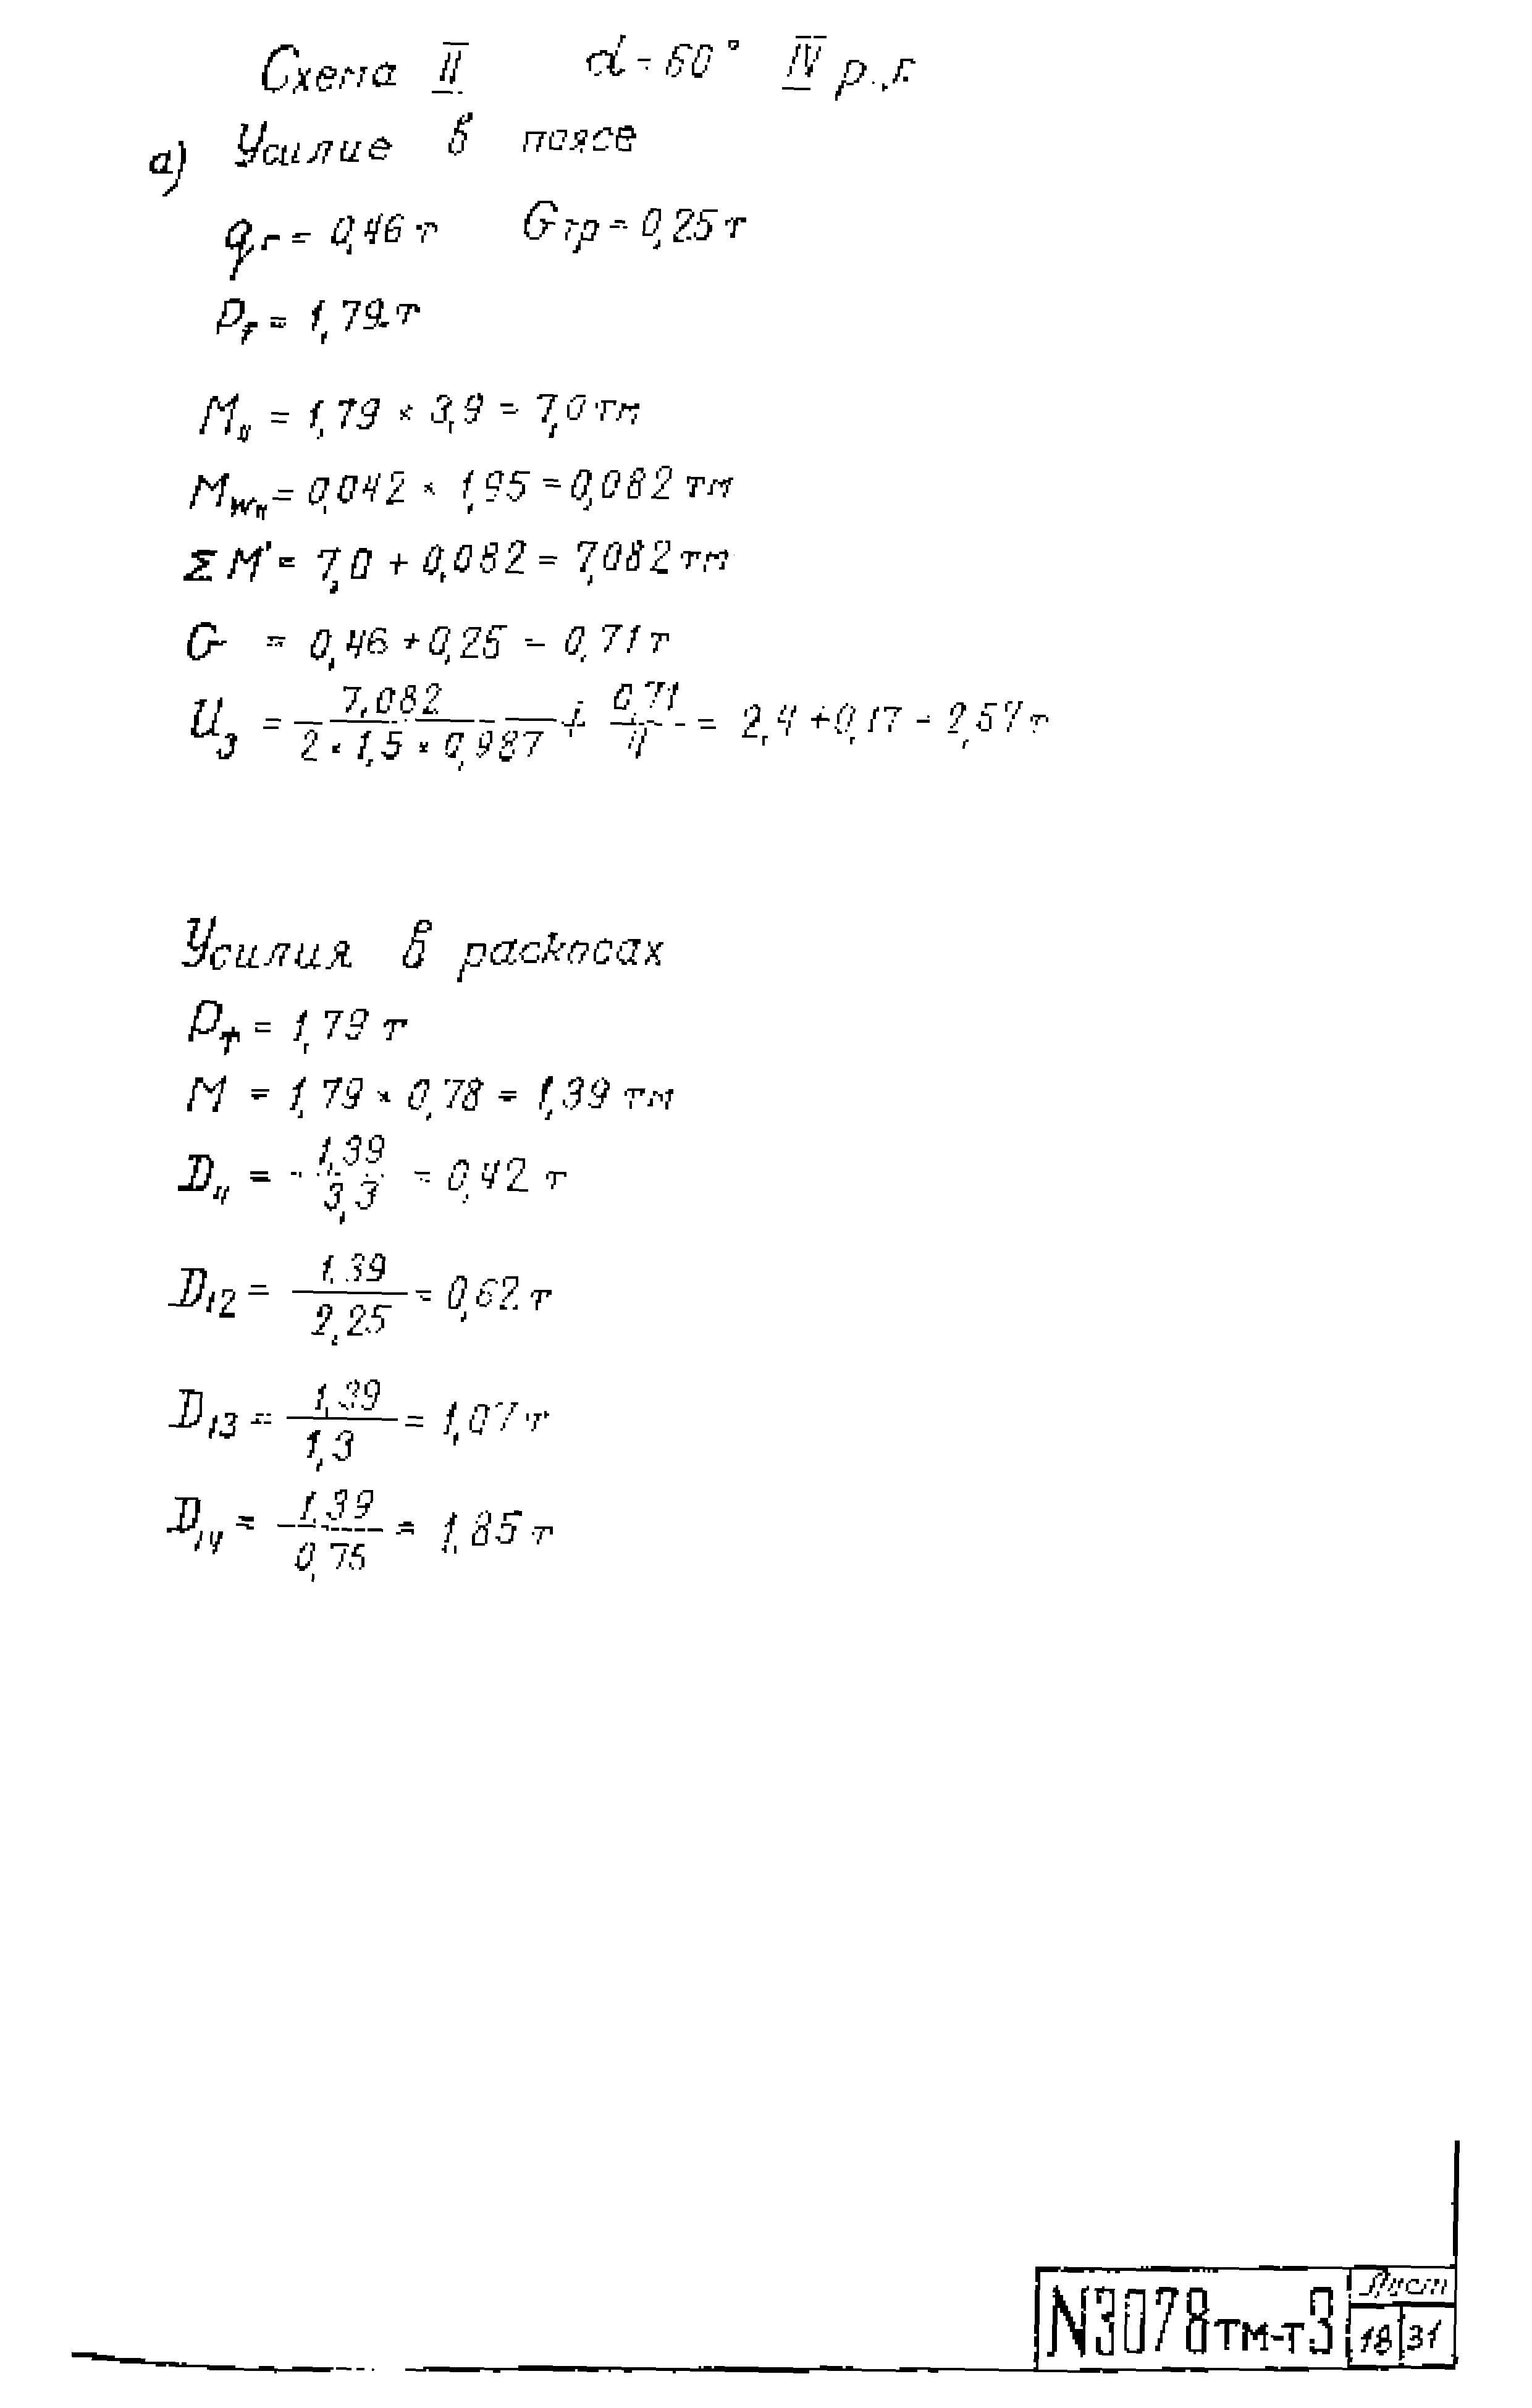 Схема II α = 60° IV р.г.
а) Усилие в поясе
qг = 0,46 т Gтр = 0,25 т
Pт = 1,79 т
Mп = 1,79 × 3,9 = 7,0 тм
MWп = 0,042 × 1,95 = 0,082 тм
ΣM' = 7,0 + 0,082 = 7,082 тм
G = 0,46 + 0,25 = 0,71 т
U3 = 7,082 / (2 × 1,5 × 0,987) + 0,71 / 4 = 2,4 + 0,17 = 2,57 т
Усилия в раскосах
Pт = 1,79 т
M = 1,79 × 0,78 = 1,39 тм
D11 = 1,39 / 3,3 = 0,42 т
D12 = 1,39 / 2,25 = 0,62 т
D13 = 1,39 / 1,3 = 1,07 т
D14 = 1,39 / 0,75 = 1,85 т
N3078тм-т3
Лист
18 31